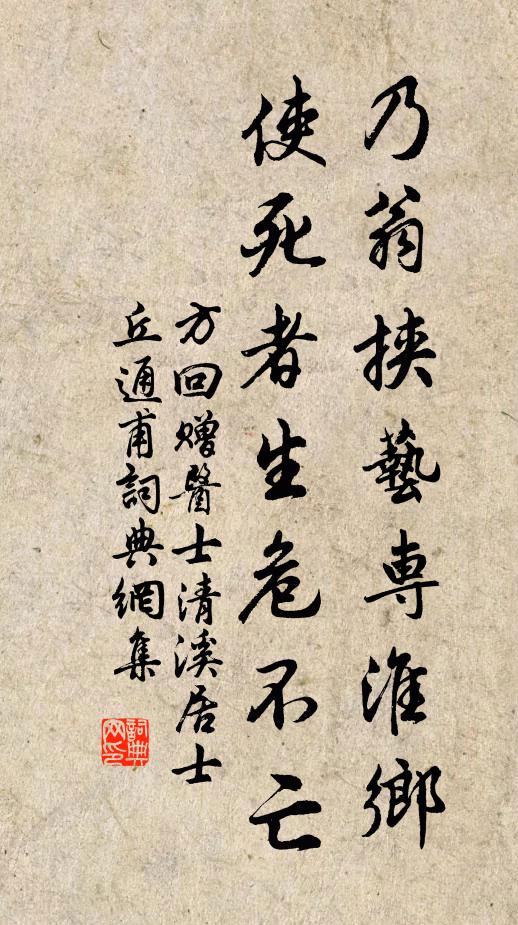 乃翁挾藝専淮鄉
使死者生危不亡
方回贈醫士清溪居士
丘通甫詞典網集
詞典
网印